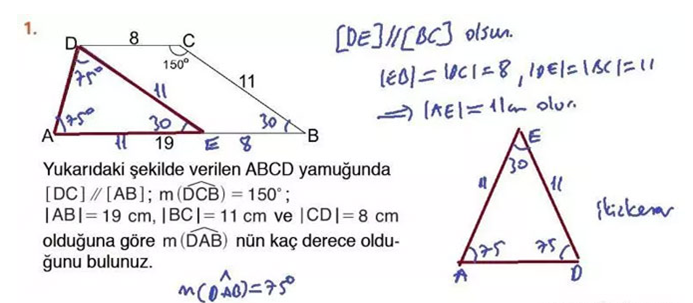 1.
D 8 C
150°
75°
11
11
A 75° 30 30 B
11 19 E 8
Yukarıdaki şekilde verilen ABCD yamuğunda
[DC] // [AB]; m(DCB) = 150°;
|AB|= 19 cm, |BC|= 11 cm ve |CD|= 8 cm
olduğuna göre m(DAB) nün kaç derece oldu-
ğunu bulunuz.
m(DAB)=75°
[DE]//[BC] olsun.
|EB|=|DC|=8, |DE|=|BC|=11
⇒ |AE|=11cm olur.
E
30
11 11
ikizkenar
75 75
A D